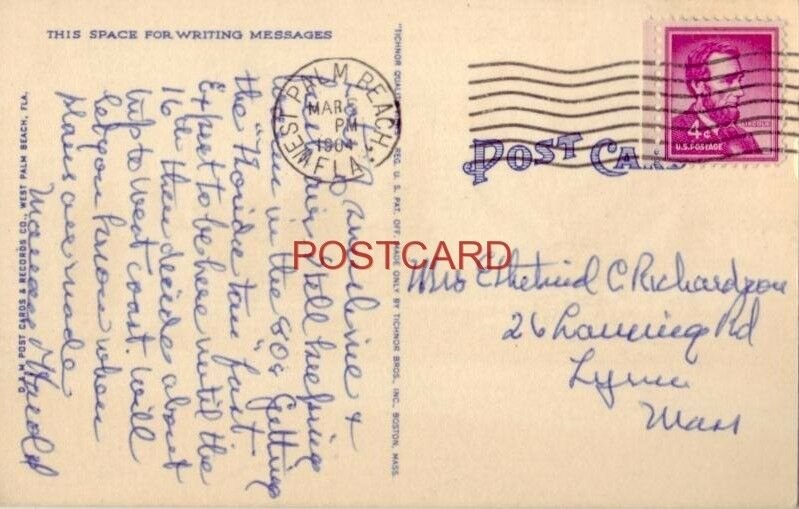 THIS SPACE FOR WRITING MESSAGES
Sunshine &
still keeping
in the 80s. Getting
the "Florida tan" fast
Expect to be here until the
16th then decide about
trip to West coast. Will
let you know when
plans are made
Harold
D & M POST CARDS & RECORDS CO., WEST PALM BEACH, FLA.
"TICHNOR QUALITY REG. U. S. PAT. OFF. MADE ONLY BY TICHNOR BROS., INC., BOSTON, MASS.
WEST PALM BEACH
MAR 5
PM
1964
FLA.
LINCOLN
4¢
U.S. POSTAGE
POST CARD
POSTCARD
Mrs Ethelind C Richardson
26 Lanning Rd
Lynn
Mass